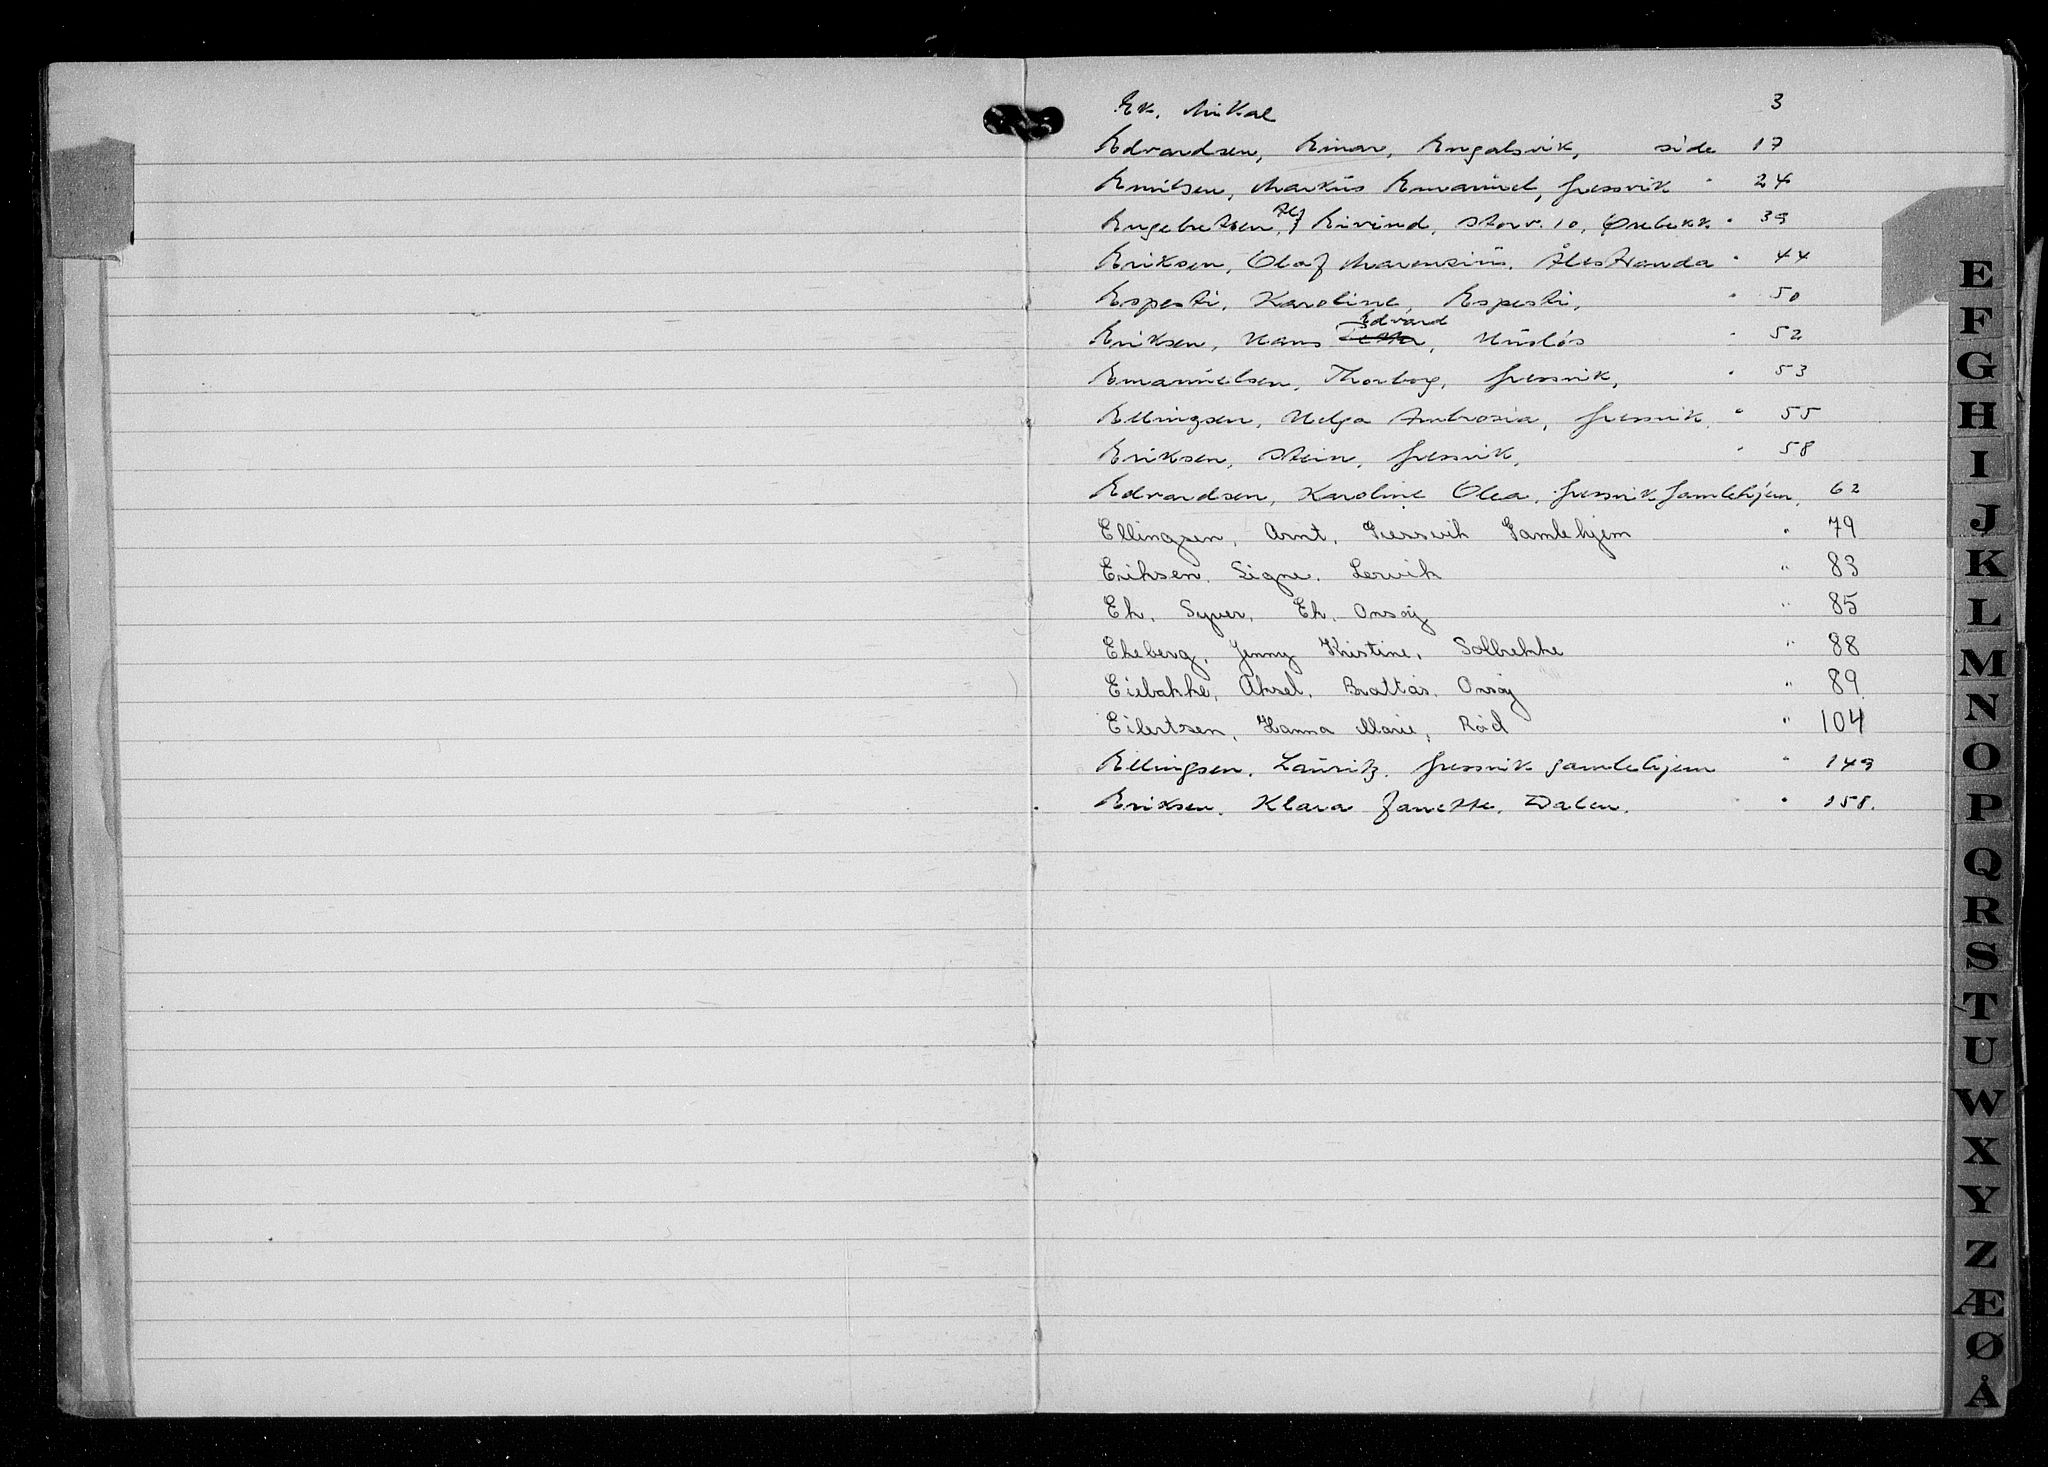 Ek, Mikal 3
Edvardsen, Einar, Engalsvik, side 17
Emilsen, Markus Emanuel, Gressvik " 24
Engebretsen, Alf Eivind, Storv. 10, Ørebekk " 39
Eriksen, Olaf Marensius, Ålestranda " 44
Espesti, Karoline, Espesti, " 50
Edvard
Eriksen, Hans , Husløs " 52
Emanuelsen, Thorborg, Gressvik, " 53
Ellingsen, Helga Ambrosia, Gressvik, " 55
Eriksen, Stein, Gressvik, " 58
Edvardsen, Karoline Olea, Gressvik Gamlehjem, 62
Ellingsen, Arnt, Gressvik Gamlehjem " 79
Eriksen, Signe, Lervik " 83
Ek, Syver, Ek, Onsøy " 85
Ekeberg, Jenny Kristine, Solbrekke " 88
Eiebakke, Aksel, Brattås, Onsøy " 89
Eilertsen, Hanna Marie, Rød " 104
Ellingsen, Lauritz, Gressvik gamlehjem " 149
Eriksen, Klara Janette, Dalen. " 158.
E
F
G
H
I
J
K
L
M
N
O
P
Q
R
S
T
U
W
X
Y
Z
Æ
Ø
Å